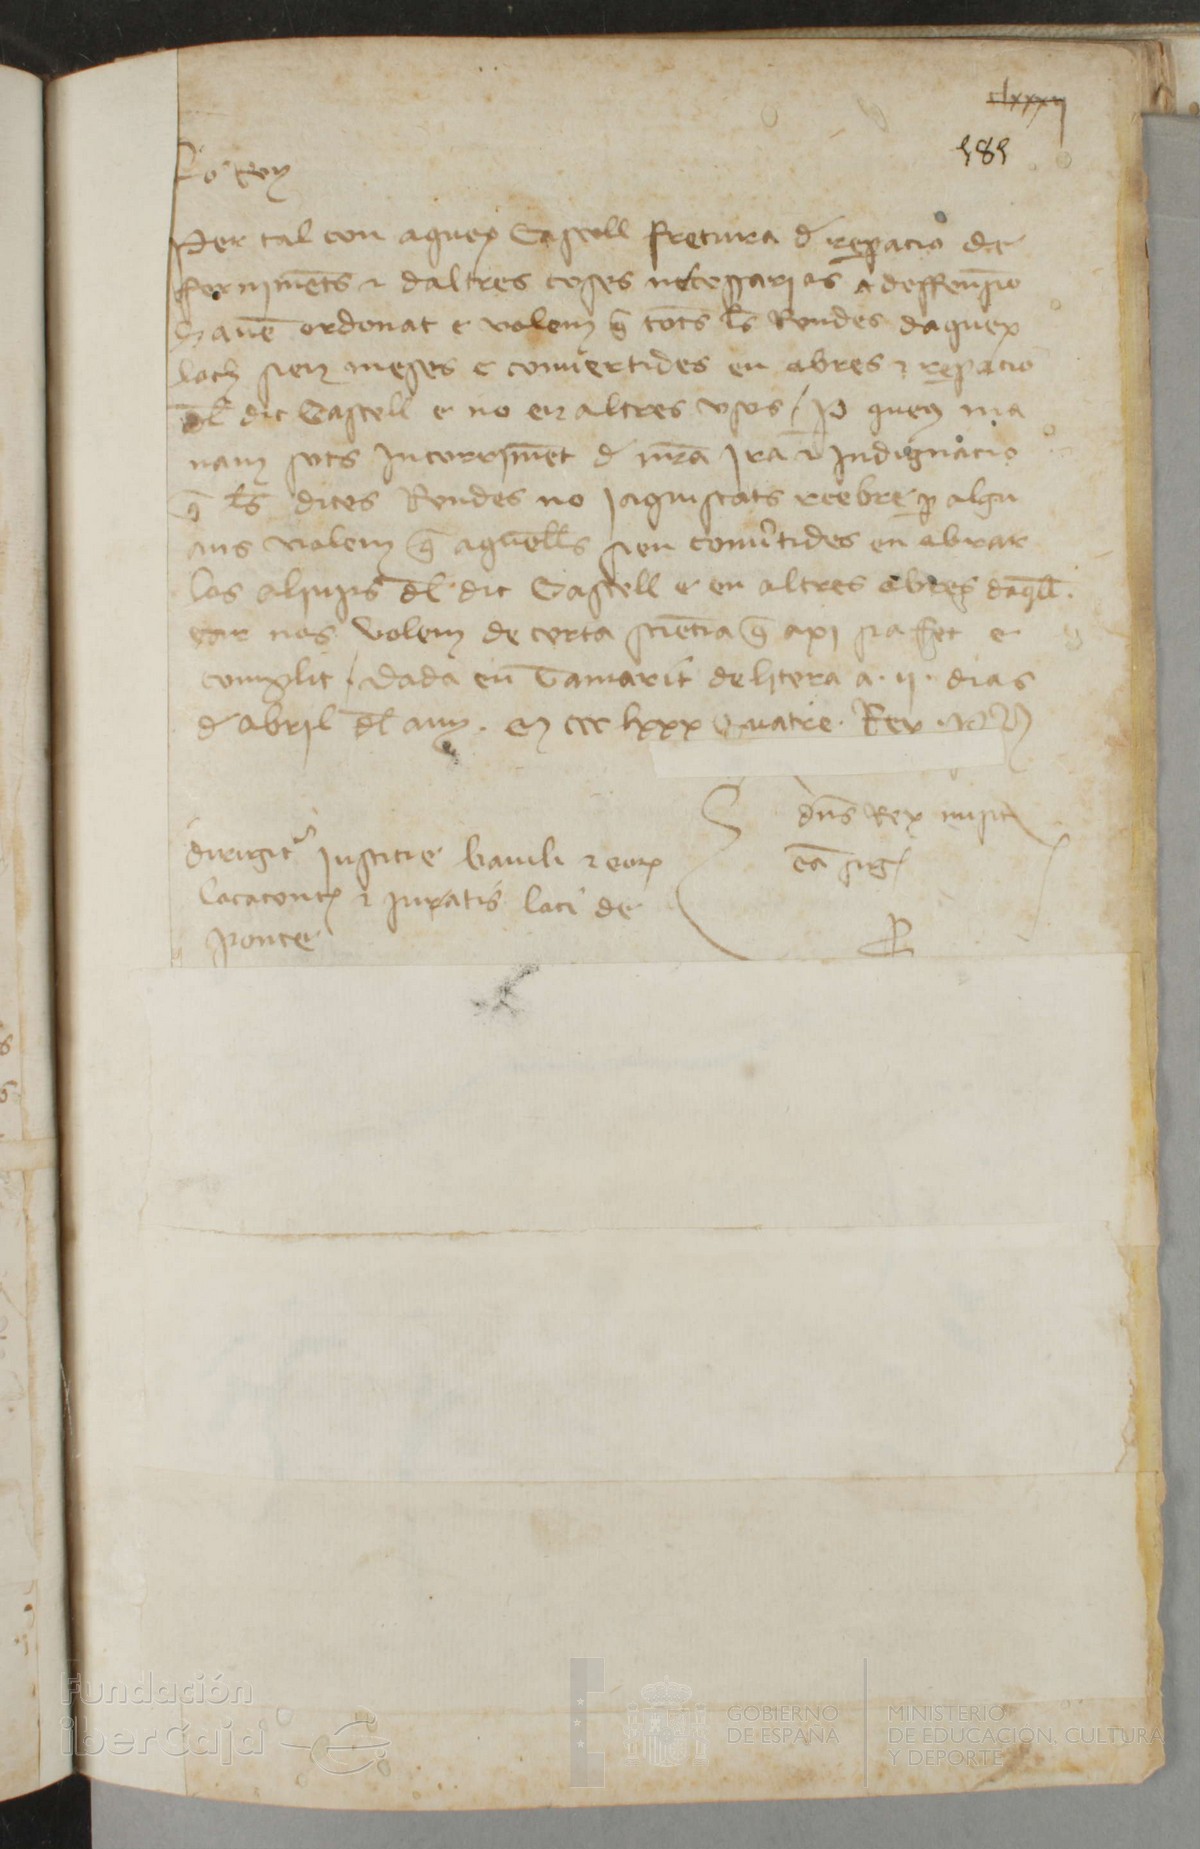 clxxxij
181
Lo Rey
Per tal con aquex Castell fretura d repacio de
fforniments e daltres coses necessaries a deffensio
havē ordonat e volem q̄ tots les Rendes daquex
loch sien meses e convertides en obres e repacio
dl dit Castell e no en altres usos / P quens ma
nam sots incorriment d nr̄a Ira e Indignacio
q̄ les dites Rendes no jaquiscats reebre p algu
ans volem q̄ aquells sien conv̄tides en obrar
los aljups dl dit Castell e en altres obres daq̄ll.
car nos volem de certa sciēcia q̄ axi sia fet e
complit / Dada en Tamarit de litera a .ij. dias
d abril dl any . M ccc lxxx Quatre . Rex . P
dn̄s Rex misit
eā sig
dirigit Justicie baiuli e eor
locatenent e juratis loci de
ponte
Fundación
iberCaja
GOBIERNO
DE ESPAÑA
MINISTERIO
DE EDUCACIÓN, CULTURA
Y DEPORTE